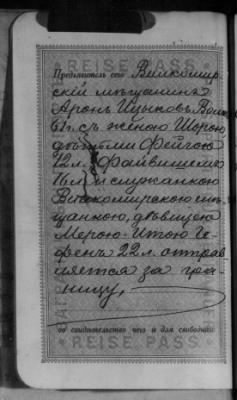 REISE PASS
Предъявитель сего Вилкомир-
скій мѣщанинъ
Аронъ Ицыковъ
61 г. съ женою Шорою,
дѣтьми Фейгою
12 л. Файвишемъ
16 л. и служанкою
Вилкомирскою мѣ-
щанкою, дѣвицею
Мерою-Итою Ге-
фенъ 22 л. отправ-
ляется за гра-
ницу, —
во свидѣтельство чего и для свободнаго
REISE PASS